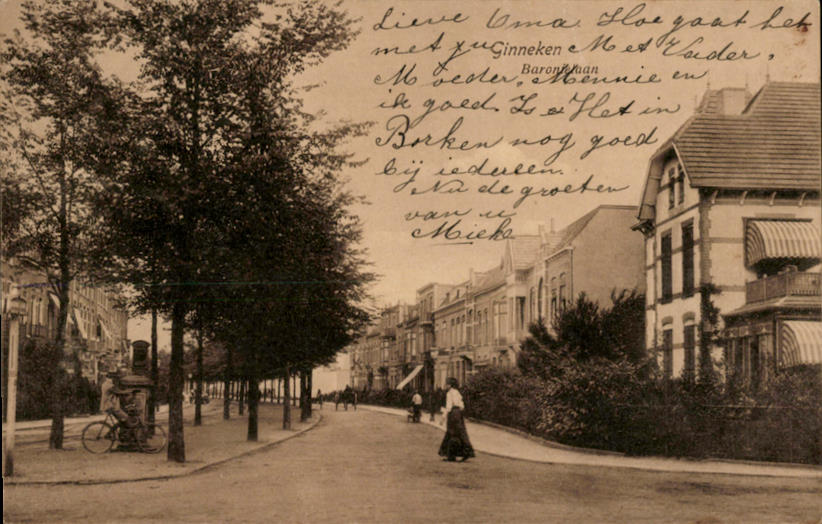 Lieve Oma. Hoe gaat het
met ju Met Vader,
Ginneken
Baronielaan
Moeder, Mennie en
ik goed. Is et Het in
Borken nog goed
bij iedereen.
Nu de groeten
van u
Miek